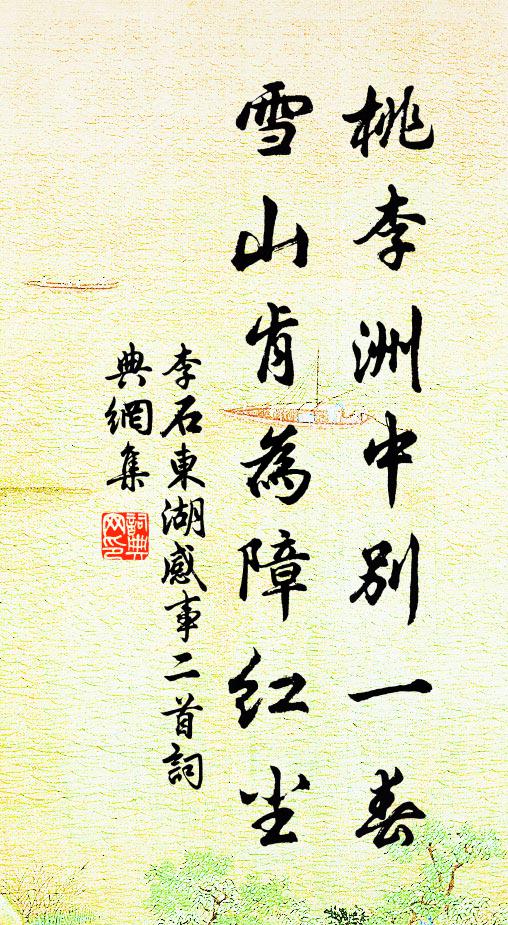 桃李洲中別一春
雪山肯為障紅尘
李石東湖感事二首詞
典網集
詞典
网印